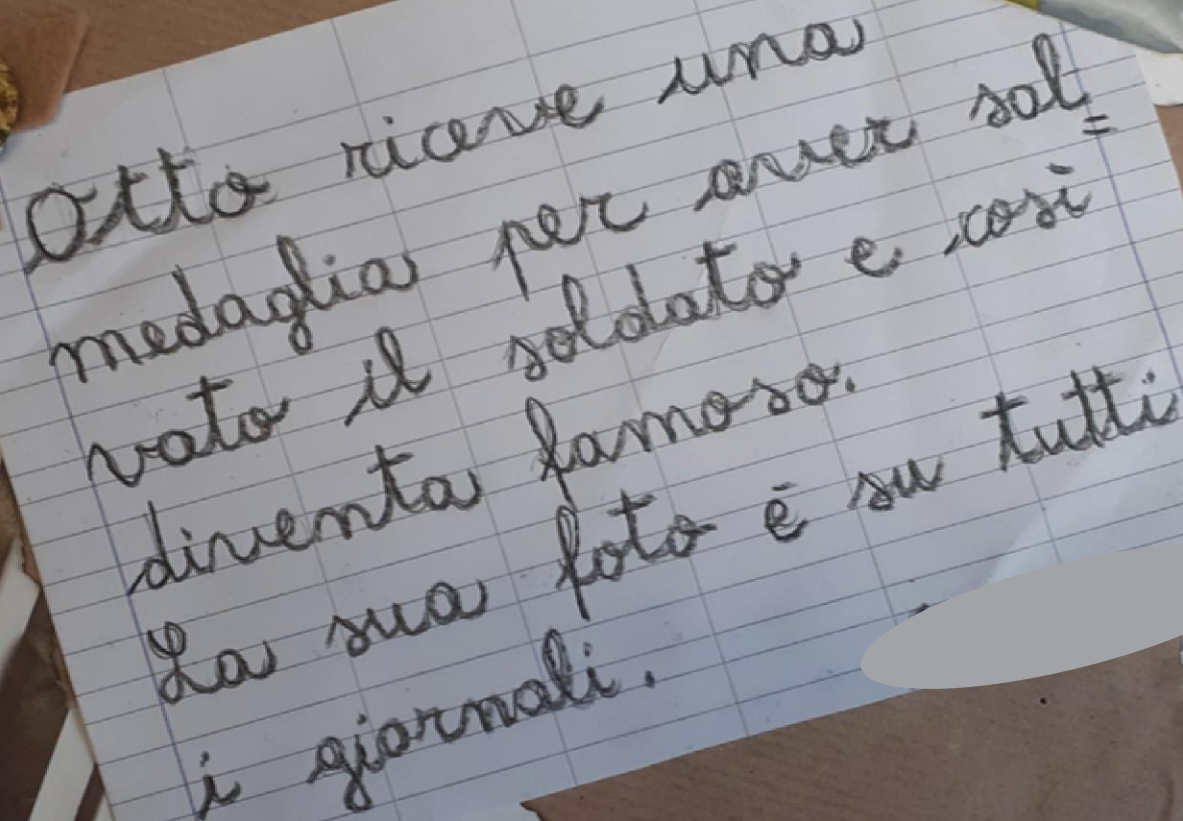 Otto riceve una
medaglia per aver sol=
vato il soldato e così
diventa famoso.
La sua foto è su tutti
i giornali.